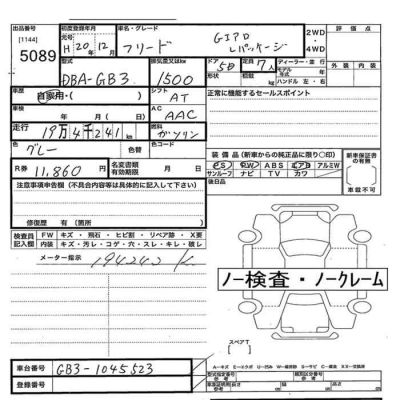 出品番号
[1144]
5089
初度登録年月
元号
H 20 年 12 月
車名・グレード
フリード
G エアロ
Lパッケージ
2WD
・
4WD
評価点
外装 内装
型式
DBA-GB3
排気量又はkW
1500
ドア 形状
5D
定員
7人
積載量
kg
ディーラー・並行
モデル
年式 年
ハンドル 左・右
車歴
自家用・( )
シフト
AT
正常に機能するセールスポイント
車検
年 月( / 日)
AC
AAC
走行
19万4千241km
燃料
ガソリン
色
グレー
色替
色コード
R券
11,860 円
名変書類
有効期限
月 日
装備品(新車からの純正品に限り○印)
PS PW ABS エアB アルミW
サンルーフ ナビ TV カワ
新車保証書
の有無
有
車載不可
注意事項申告欄(不具合内容等は具体的に記入して下さい)
後日品
修復歴 有(箇所 )
検査員
記入欄
FW キズ・飛石・ヒビ割・リペア跡・X要
内装 キズ・汚レ・コゲ・穴・スレ・キレ・破レ
メーター指示 194242 K
ノー検査・ノークレーム
スペアT
車台番号
GB3-1045523
登録番号
型式指定番号
類別区分番号